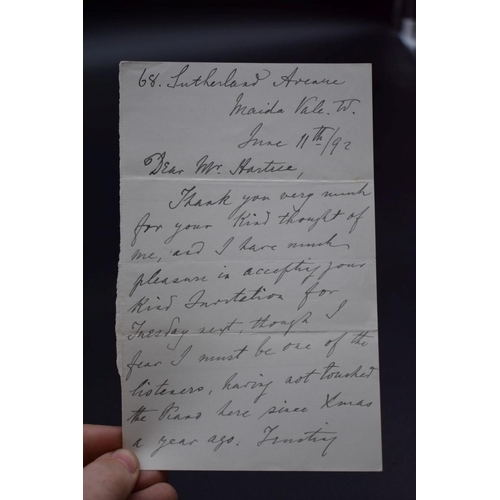 68. Sutherland Avenue
Maida Vale. W.
June 11th/92
Dear Mr. Hartree,
Thank you very much
for your kind thought of
me, and I have much
pleasure in accepting your
kind Invitation for
Tuesday next, though I
fear I must be one of the
listeners, having not touched
the Piano here since Xmas
a year ago. Trusting